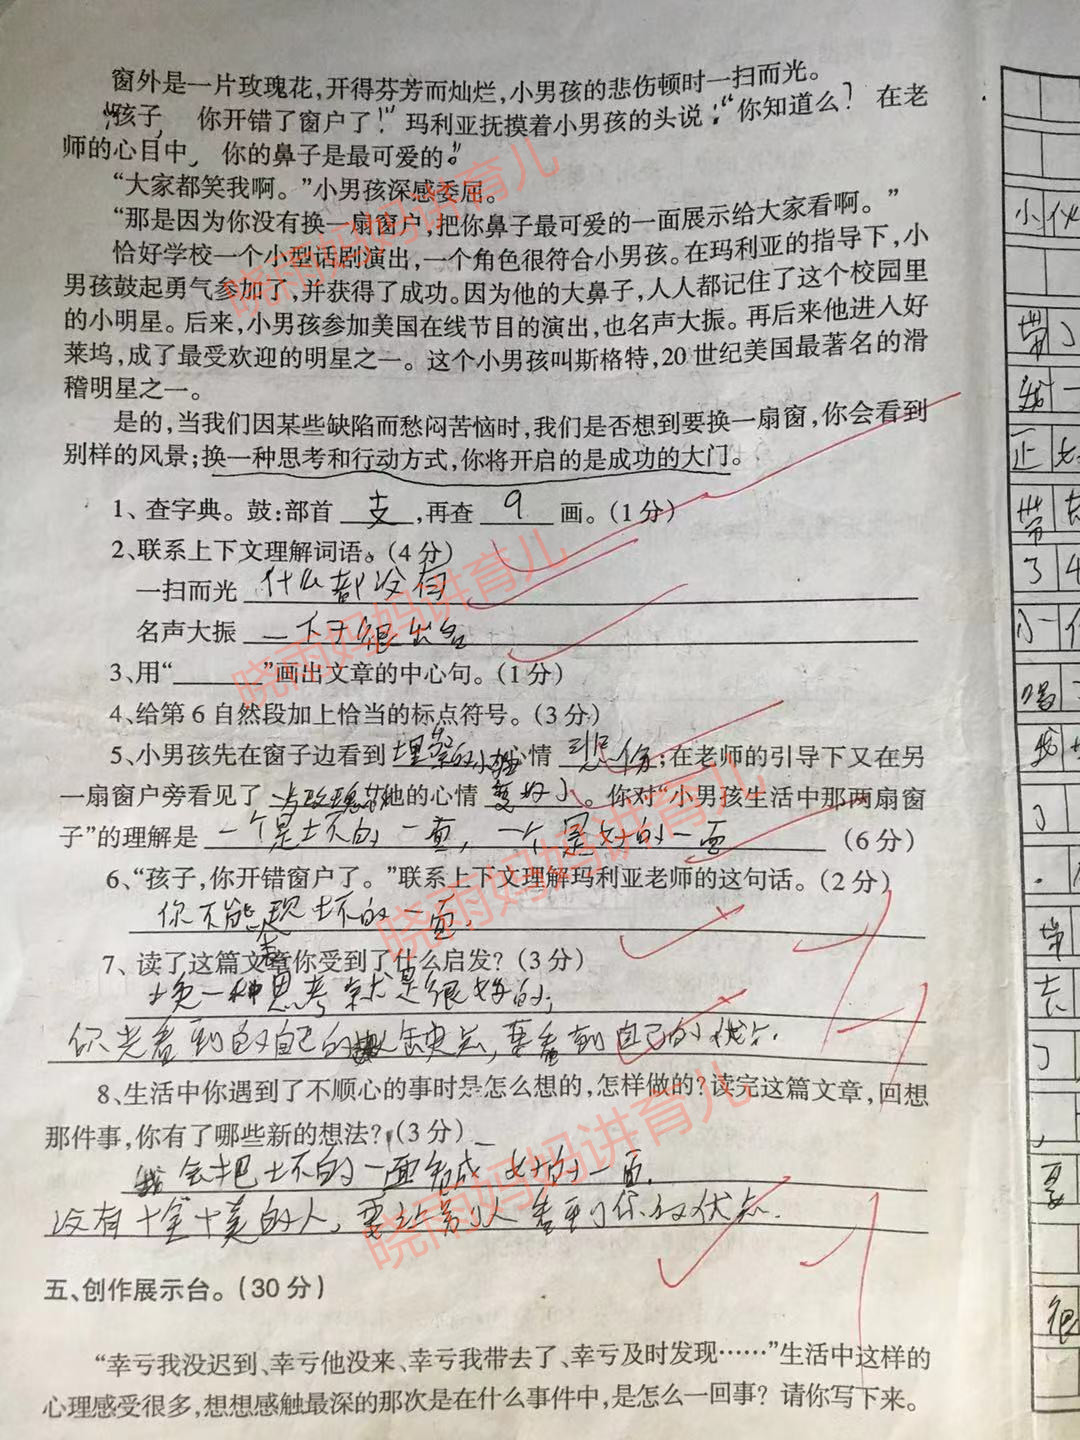 窗外是一片玫瑰花,开得芬芳而灿烂,小男孩的悲伤顿时一扫而光。
“孩子, 你开错了窗户了!”玛利亚抚摸着小男孩的头说:“你知道么? 在老
师的心目中, 你的鼻子是最可爱的。”
“大家都笑我啊。”小男孩深感委屈。
“那是因为你没有换一扇窗户,把你鼻子最可爱的一面展示给大家看啊。”
恰好学校一个小型话剧演出,一个角色很符合小男孩。在玛利亚的指导下,小
男孩鼓起勇气参加了,并获得了成功。因为他的大鼻子,人人都记住了这个校园里
的小明星。后来,小男孩参加美国在线节目的演出,也名声大振。再后来他进入好
莱坞,成了最受欢迎的明星之一。这个小男孩叫斯格特,20世纪美国最著名的滑
稽明星之一。
是的,当我们因某些缺陷而愁闷苦恼时,我们是否想到要换一扇窗,你会看到
别样的风景;换一种思考和行动方式,你将开启的是成功的大门。
1、查字典。鼓:部首 支 ,再查 9 画。(1分)
2、联系上下文理解词语。(4分)
一扫而光 什么都没有
名声大振 一下子很出名
3、用“______”画出文章的中心句。(1分)
4、给第6自然段加上恰当的标点符号。(3分)
5、小男孩先在窗子边看到 埋葬的小狗 心情 悲伤;在老师的引导下又在另
一扇窗户旁看见了 玫瑰花 他的心情 变好了。你对“小男孩生活中那两扇窗
子”的理解是 一个是坏的一面,一个是好的一面 (6分)
6、“孩子,你开错窗户了。”联系上下文理解玛利亚老师的这句话。(2分)
你不能表现坏的一面.
7、读了这篇文章你受到了什么启发?(3分)
换一种思考就是很好的,
你光看到的自己的缺点,要看到自己的优点.
8、生活中你遇到了不顺心的事时是怎么想的,怎样做的?读完这篇文章,回想
那件事,你有了哪些新的想法?(3分)
我会把坏的一面看成好的一面.
没有十全十美的人,要让别人看到你的优点.
五、创作展示台。(30分)
“幸亏我没迟到、幸亏他没来、幸亏我带去了、幸亏及时发现……”生活中这样的
心理感受很多,想想感触最深的那次是在什么事件中,是怎么一回事? 请你写下来。
晓雨妈妈讲育儿
晓雨妈妈讲育儿
晓雨妈妈讲育儿
晓雨妈妈讲育儿